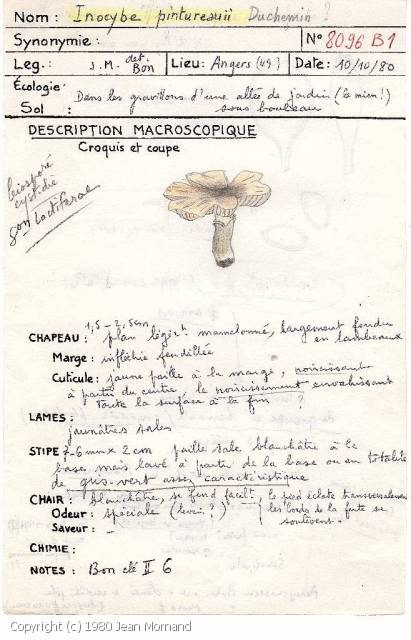 Nom : Inocybe pintureauii Duchemin ?
Synonymie : N° 8096 B1
Leg. : J.M. det. Bon Lieu: Angers (49) Date: 10/10/80
Écologie
Sol : Dans les gravillons d'une allée de jardin (le mien!)
sous bouleau
DESCRIPTION MACROSCOPIQUE
Croquis et coupe
leiosporé
cystidié
CHAPEAU : 1,5 - 2,5cm plan légèrt mamelonné, largement fendu
en lambeaux
Marge : infléchie fendillée
Cuticule : jaune paille à la marge, noircissant
à partir du centre le noircissement envahissant
toute la surface à la fin ?
LAMES :
jaunâtres sales
STIPE 7-6 mm x 2 cm paille sale blanchâtre à la
base, mais lavé à partir de la base ou en totalité
de gris-vert assez caractéristique
CHAIR : blanchâtre, se fend facilt. le pied éclate transversalement
Odeur : spéciale (levin ?) les bords de la fente se
Saveur : — soulèvent.
CHIMIE :
NOTES : Bon clé II 6
Copyright (c) 1980 Jean Mornand